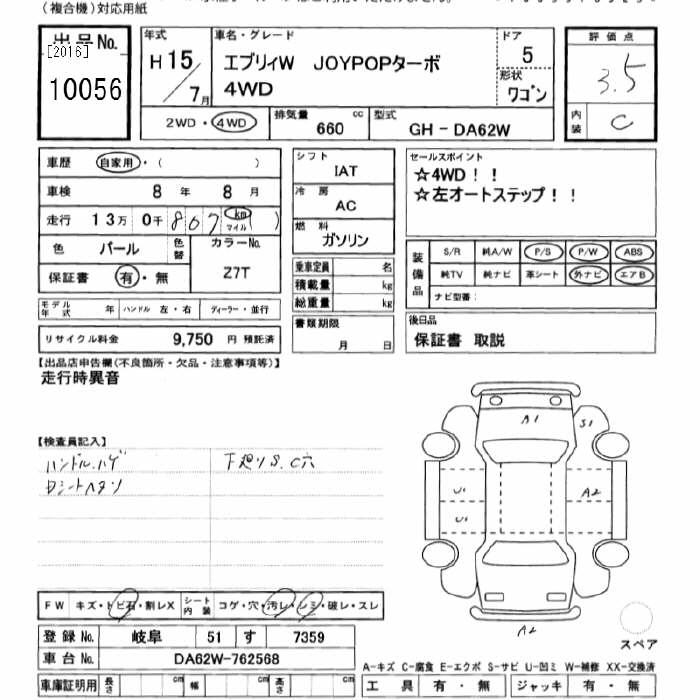 (複合機)対応用紙
出品No.
[2016]
10056
年式
H 15 / 7月
車名・グレード
エブリィW JOYPOPターボ
4WD
ドア
5
形状
ワゴン
評価点
3.5
内装
C
2WD・4WD
排気量
660 cc
型式
GH - DA62W
車歴 自家用・( )
車検 8年 8月
走行 13万 0千 807 km マイル ( )
色 パール 色替 カラーNo.
Z7T
保証書 有・無
モデル年式 年 ハンドル 左・右 ディーラー・並行
リサイクル料金 9,750 円 預託済
シフト
IAT
冷房
AC
燃料
ガソリン
乗車定員 名
積載量 kg
総重量 kg
書類期限
月 日
セールスポイント
☆4WD!!
☆左オートステップ!!
装備品
S/R 純A/W P/S P/W ABS
純TV 純ナビ 革シート 外ナビ エアB
ナビ型番:
後日品
保証書 取説
【出品店申告欄(不良箇所・欠品・注意事項等)】
走行時異音
【検査員記入】
ハンドル、ハゲ 下廻りS、C穴
シートヘタリ
A1
S1
U1
U1
A2
A2
スペア
FW キズ・トビ石・割レX シート内装 コゲ・穴・汚レ・シミ・破レ・スレ
登録No. 岐阜 51 す 7359
車台No. DA62W-762568
車庫証明用 長さ cm 幅 cm 高さ cm
A-キズ C-腐食 E-エクボ S-サビ U-凹ミ W-補修 XX-交換済
工具 有・無 ジャッキ 有・無